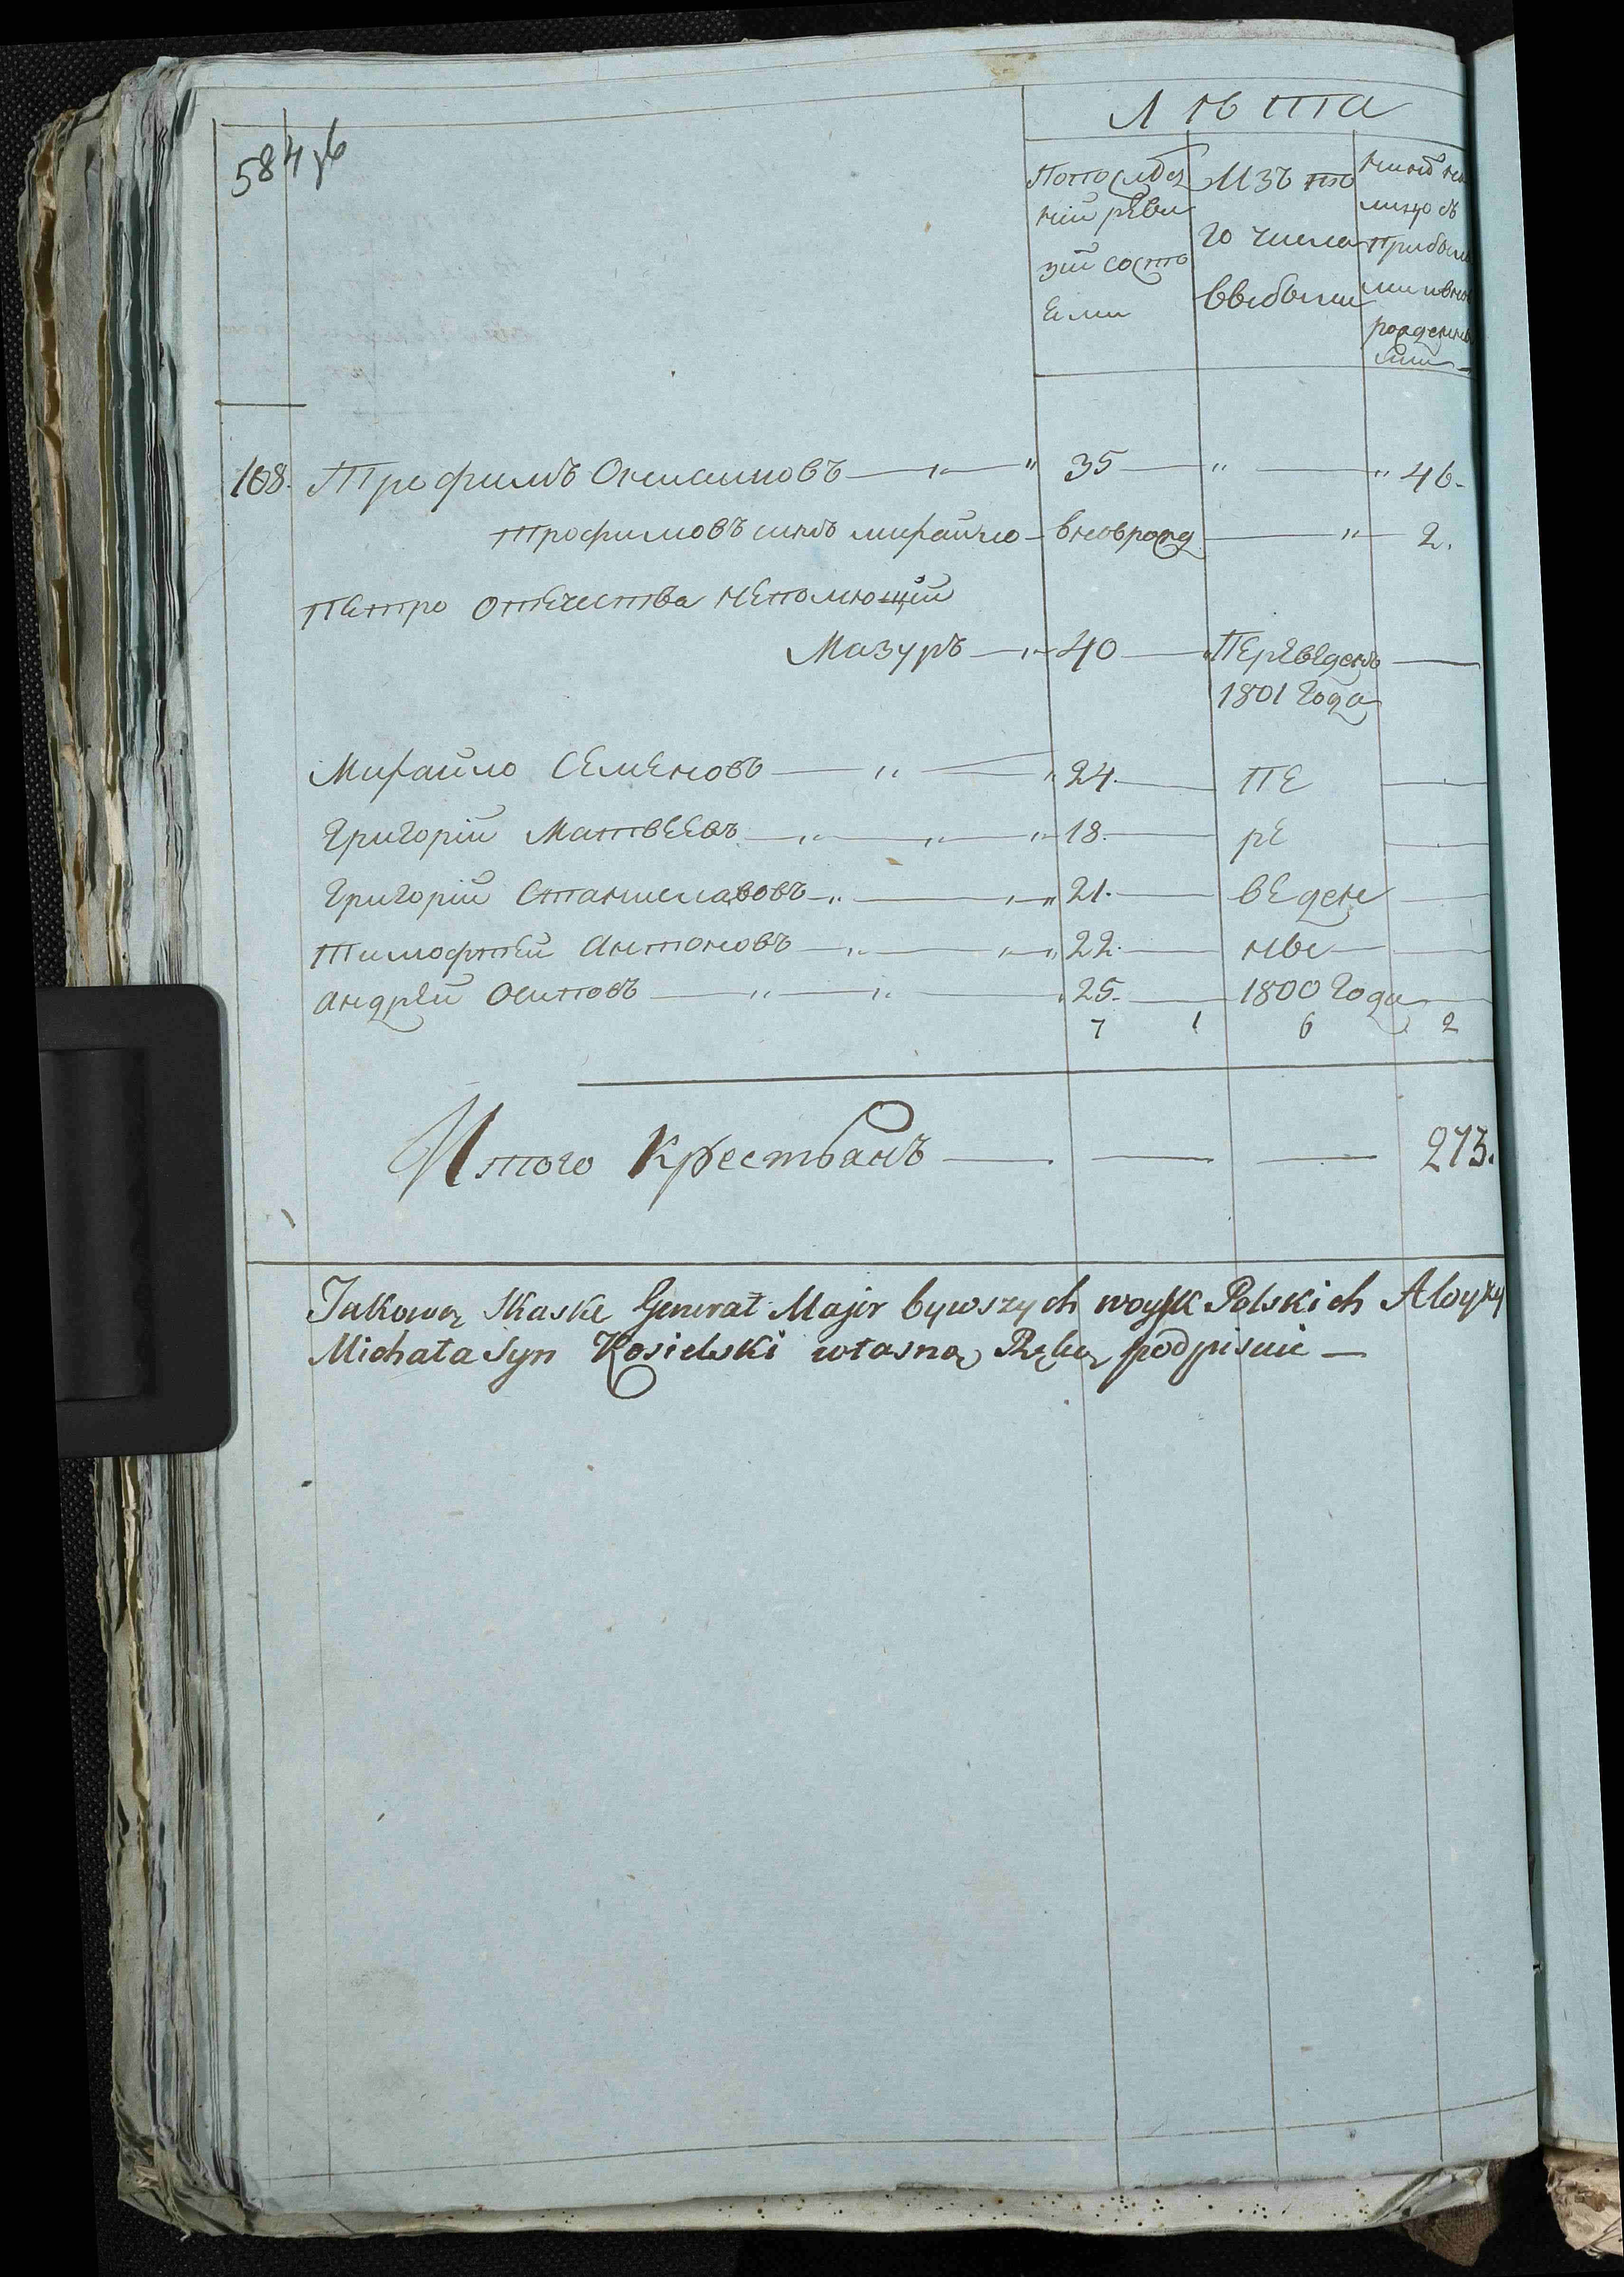 584 зб
Лѣта
Попослѣд
ній реви
зіи состо
ели
Изъ то
го числа
выбыли
Нынѣ на
лицо съ
прибыл
ми и внов
рожденны
ми
108. Трофимъ Онисимовъ 35 46.
Трофимовъ сынъ михайло вноврожд 2.
Петро отечества непомнющий
Мазуръ 40 Переведенъ
1801 Года
Михайло Семеновъ 24 пе
Григорій Матвеевъ 18. ре
Григорій Станиславовъ 21. веден
Тимофтей Антоновъ 22. ные
Андрей Осиповъ 25. 1800 Года
7 1 6 2
Итого Крестьянъ 273.
Jakową Skaskę Generał Major bywszych woysk Polskich Aloyzy
Michała Syn Kosielski własną Ręką podpisuie